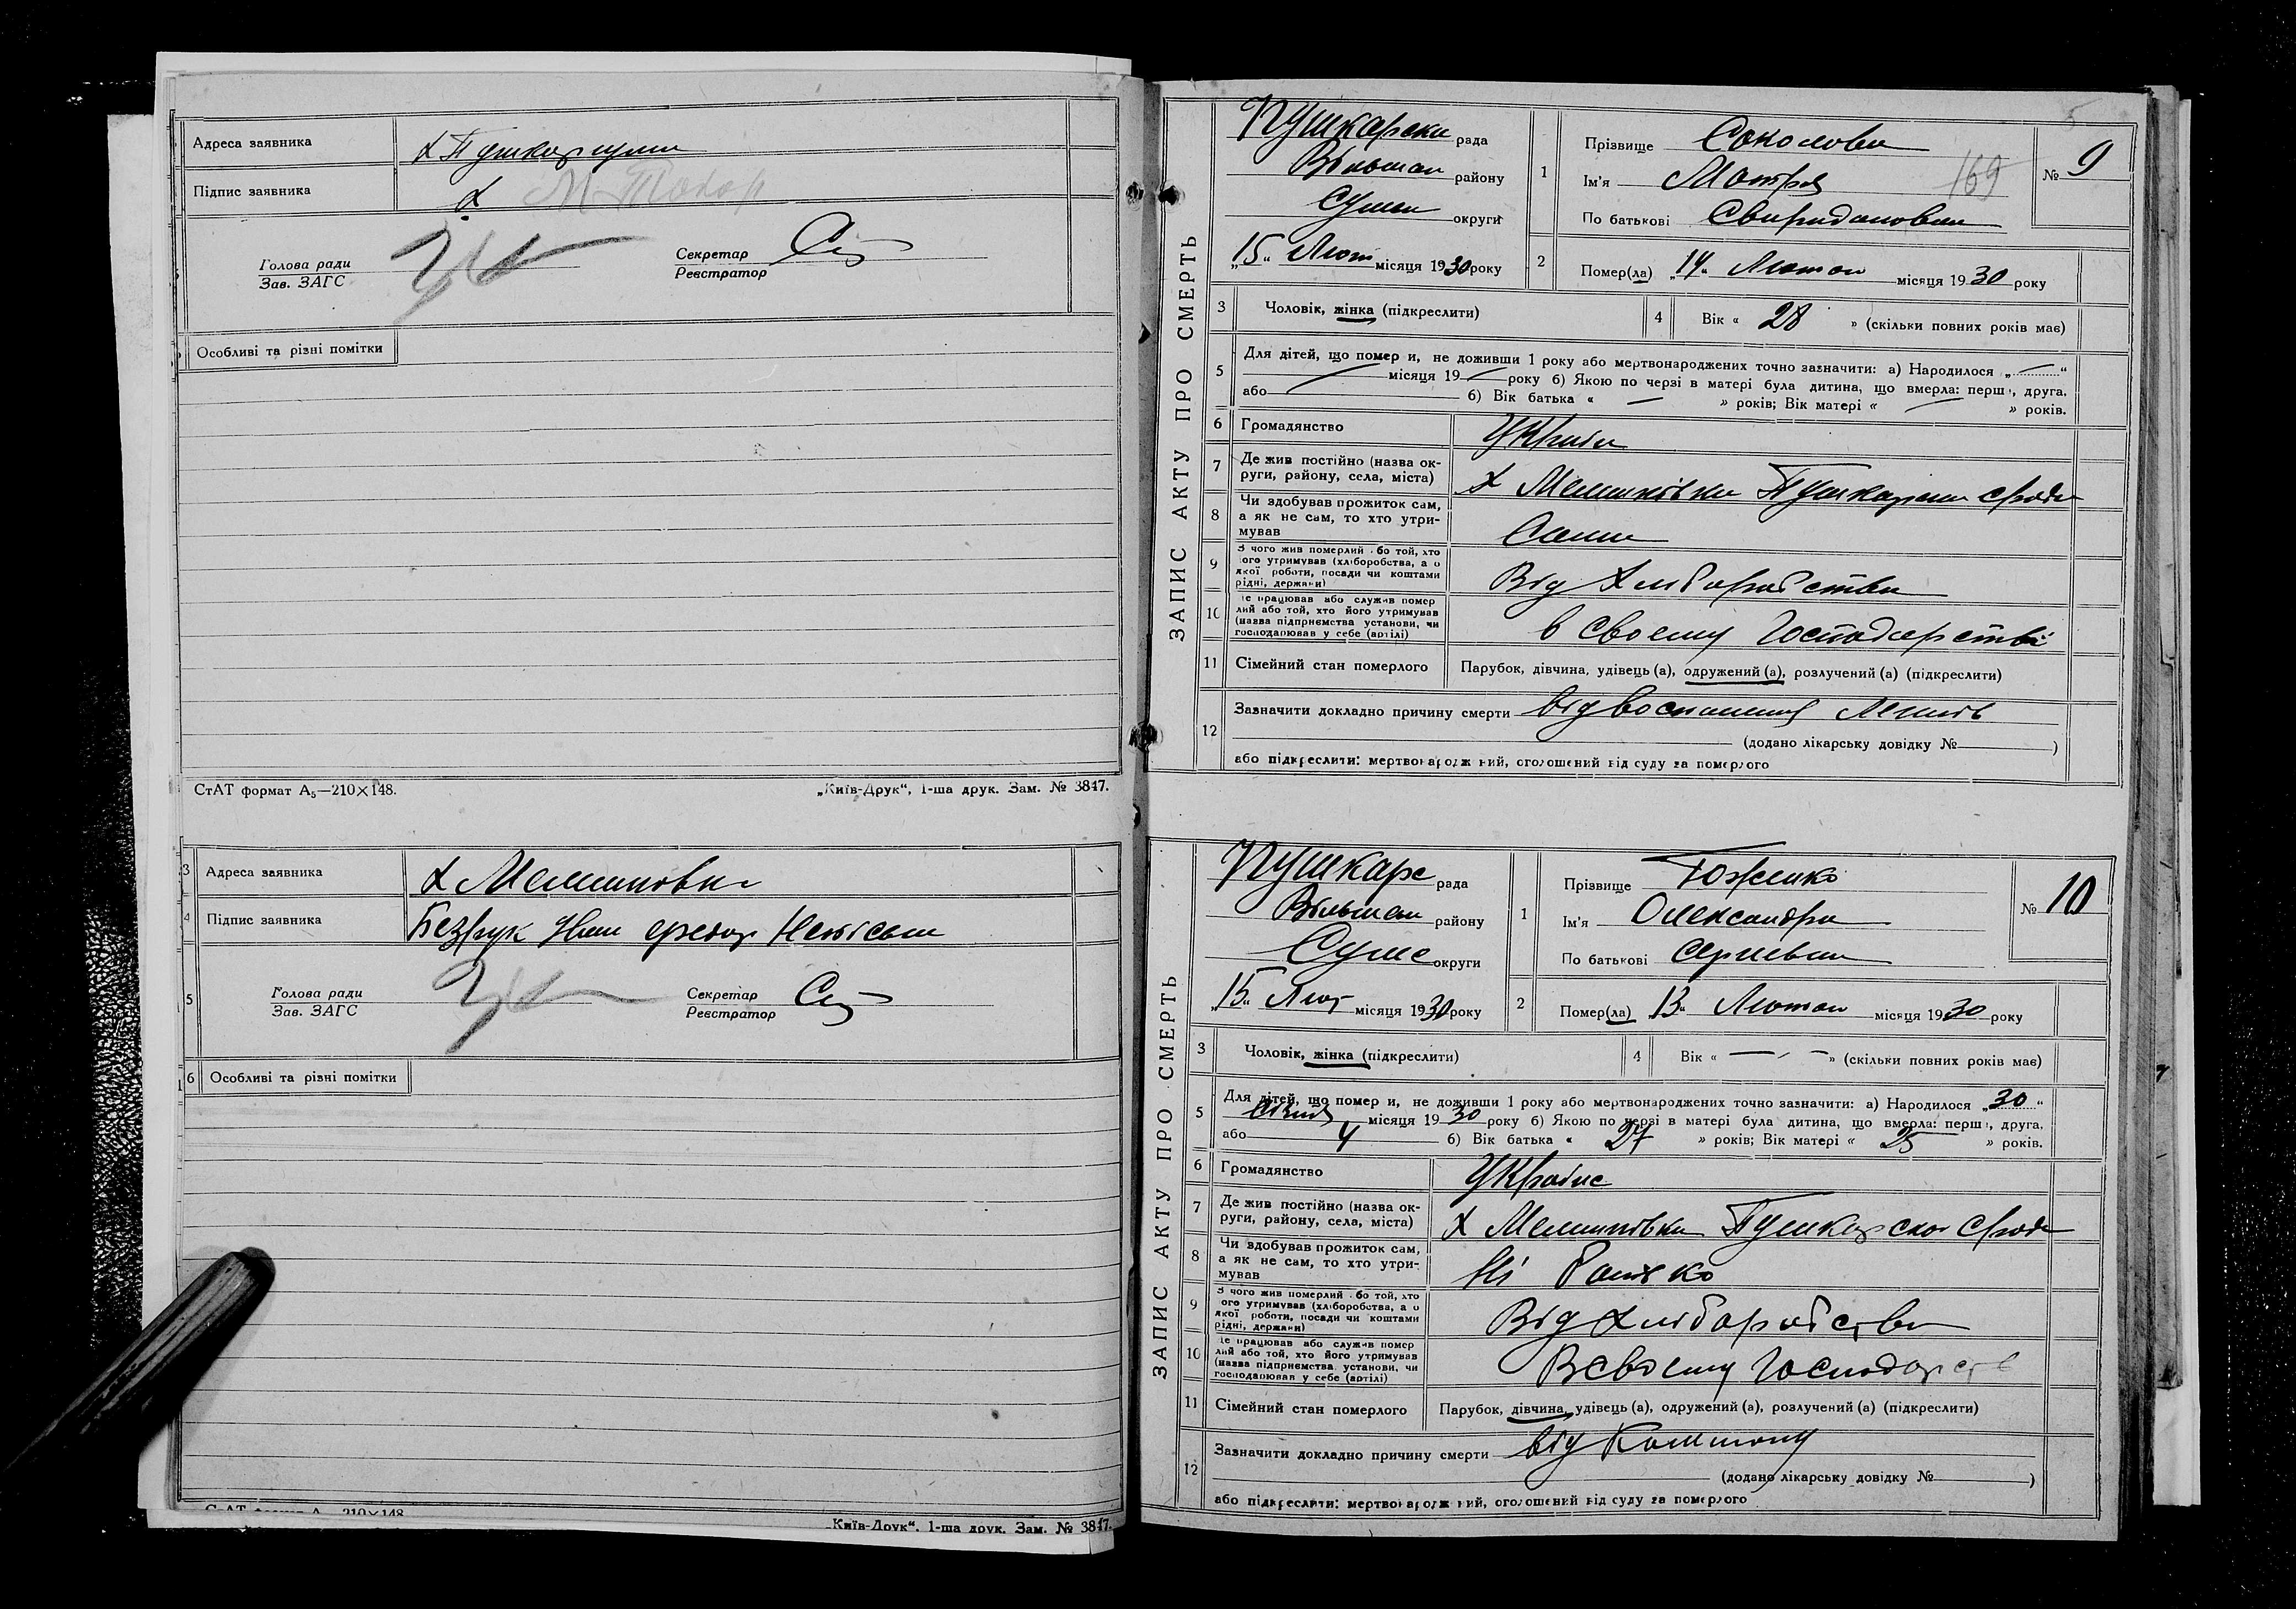 Адреса заявника х Пушкарщина
Підпис заявника
Голова ради
Зав. ЗАГС
Секретар
Реєстратор
Особливі та різні помітки
СтАТ формат А5—210×148.
„Київ-Друк“, 1-ша друк. Зам. № 3847.
3 Адреса заявника
4 Підпис заявника Безрук
5 Голова ради
Зав. ЗАГС
Секретар
Реєстратор
6 Особливі та різні помітки
„Київ-Друк“, 1-ша друк. Зам. № 3847.
ЗАПИС АКТУ ПРО СМЕРТЬ
Пушкарськ рада
району
Сумськ округи
„15“ Лют місяця 1930 року
1 Прізвище Соколова
Ім'я Мотря 169
По батькові Свиридоновна
№ 9
2 Помер(ла) „14“ Лютого місяця 1930 року
3 Чоловік, жінка (підкреслити)
4 Вік « 28 » (скільки повних років має)
5 Для дітей, що помер и, не доживши 1 року або мертвонароджених точно зазначити: а) Народилося „ — “
місяця 19 — року б) Якою по черзі в матері була дитина, що вмерла: перш , друга,
або — б) Вік батька « — » років; Вік матері « — » років.
6 Громадянство Україн
7 Де жив постійно (назва округи, району, села, міста) х
8 Чи здобував прожиток сам, а як не сам, то хто утримував Сама
9 З чого жив померлий бо той, хто ого утримував (хліборобства, а о якої роботи, посади чи коштами рідні, держави) Від Хліборобства
10 е працював або служив помер лий або той, хто його утримував (назва підприємства установи, чи господарював у себе (артілі) в своєму Господарстві
11 Сімейний стан померлого Парубок, дівчина, удівець (а), одружений (а), розлучений (а) (підкреслити)
12 Зазначити докладно причину смерти від воспаления
(додано лікарську довідку № )
або підкреслити: мертвонародж ний, оголошений від суду за померлого
ЗАПИС АКТУ ПРО СМЕРТЬ
Пушкарс рада
району
Сумс округи
„15“ Лют місяця 1930 року
1 Прізвище
Ім'я Олександра
По батькові Сергиевна
№ 10
2 Помер(ла) „13“ Лютого місяця 1930 року
3 Чоловік, жінка (підкреслити)
4 Вік « — » (скільки повних років має)
5 Для дітей, що помер и, не доживши 1 року або мертвонароджених точно зазначити: а) Народилося „30“
Січня місяця 1930 року б) Якою по черзі в матері була дитина, що вмерла: перш , друга,
або 4 б) Вік батька « 27 » років; Вік матері « 25 » років.
6 Громадянство Українс
7 Де жив постійно (назва округи, району, села, міста) х
8 Чи здобував прожиток сам, а як не сам, то хто утримував Ні Батько
9 З чого жив померлий бо той, хто ого утримував (хліборобства, а о якої роботи, посади чи коштами рідні, держави) Від Хліборобства
10 е працював або служив помер лий або той, хто його утримував (назва підприємства, установи, чи господарював у себе (артілі) В своєму Господарст
11 Сімейний стан померлого Парубок, дівчина, удівець (а), одружений (а), розлучений (а) (підкреслити)
12 Зазначити докладно причину смерти від
(додано лікарську довідку № )
або підкреслити: мертвонародж ний, оголошений від суду за померлого